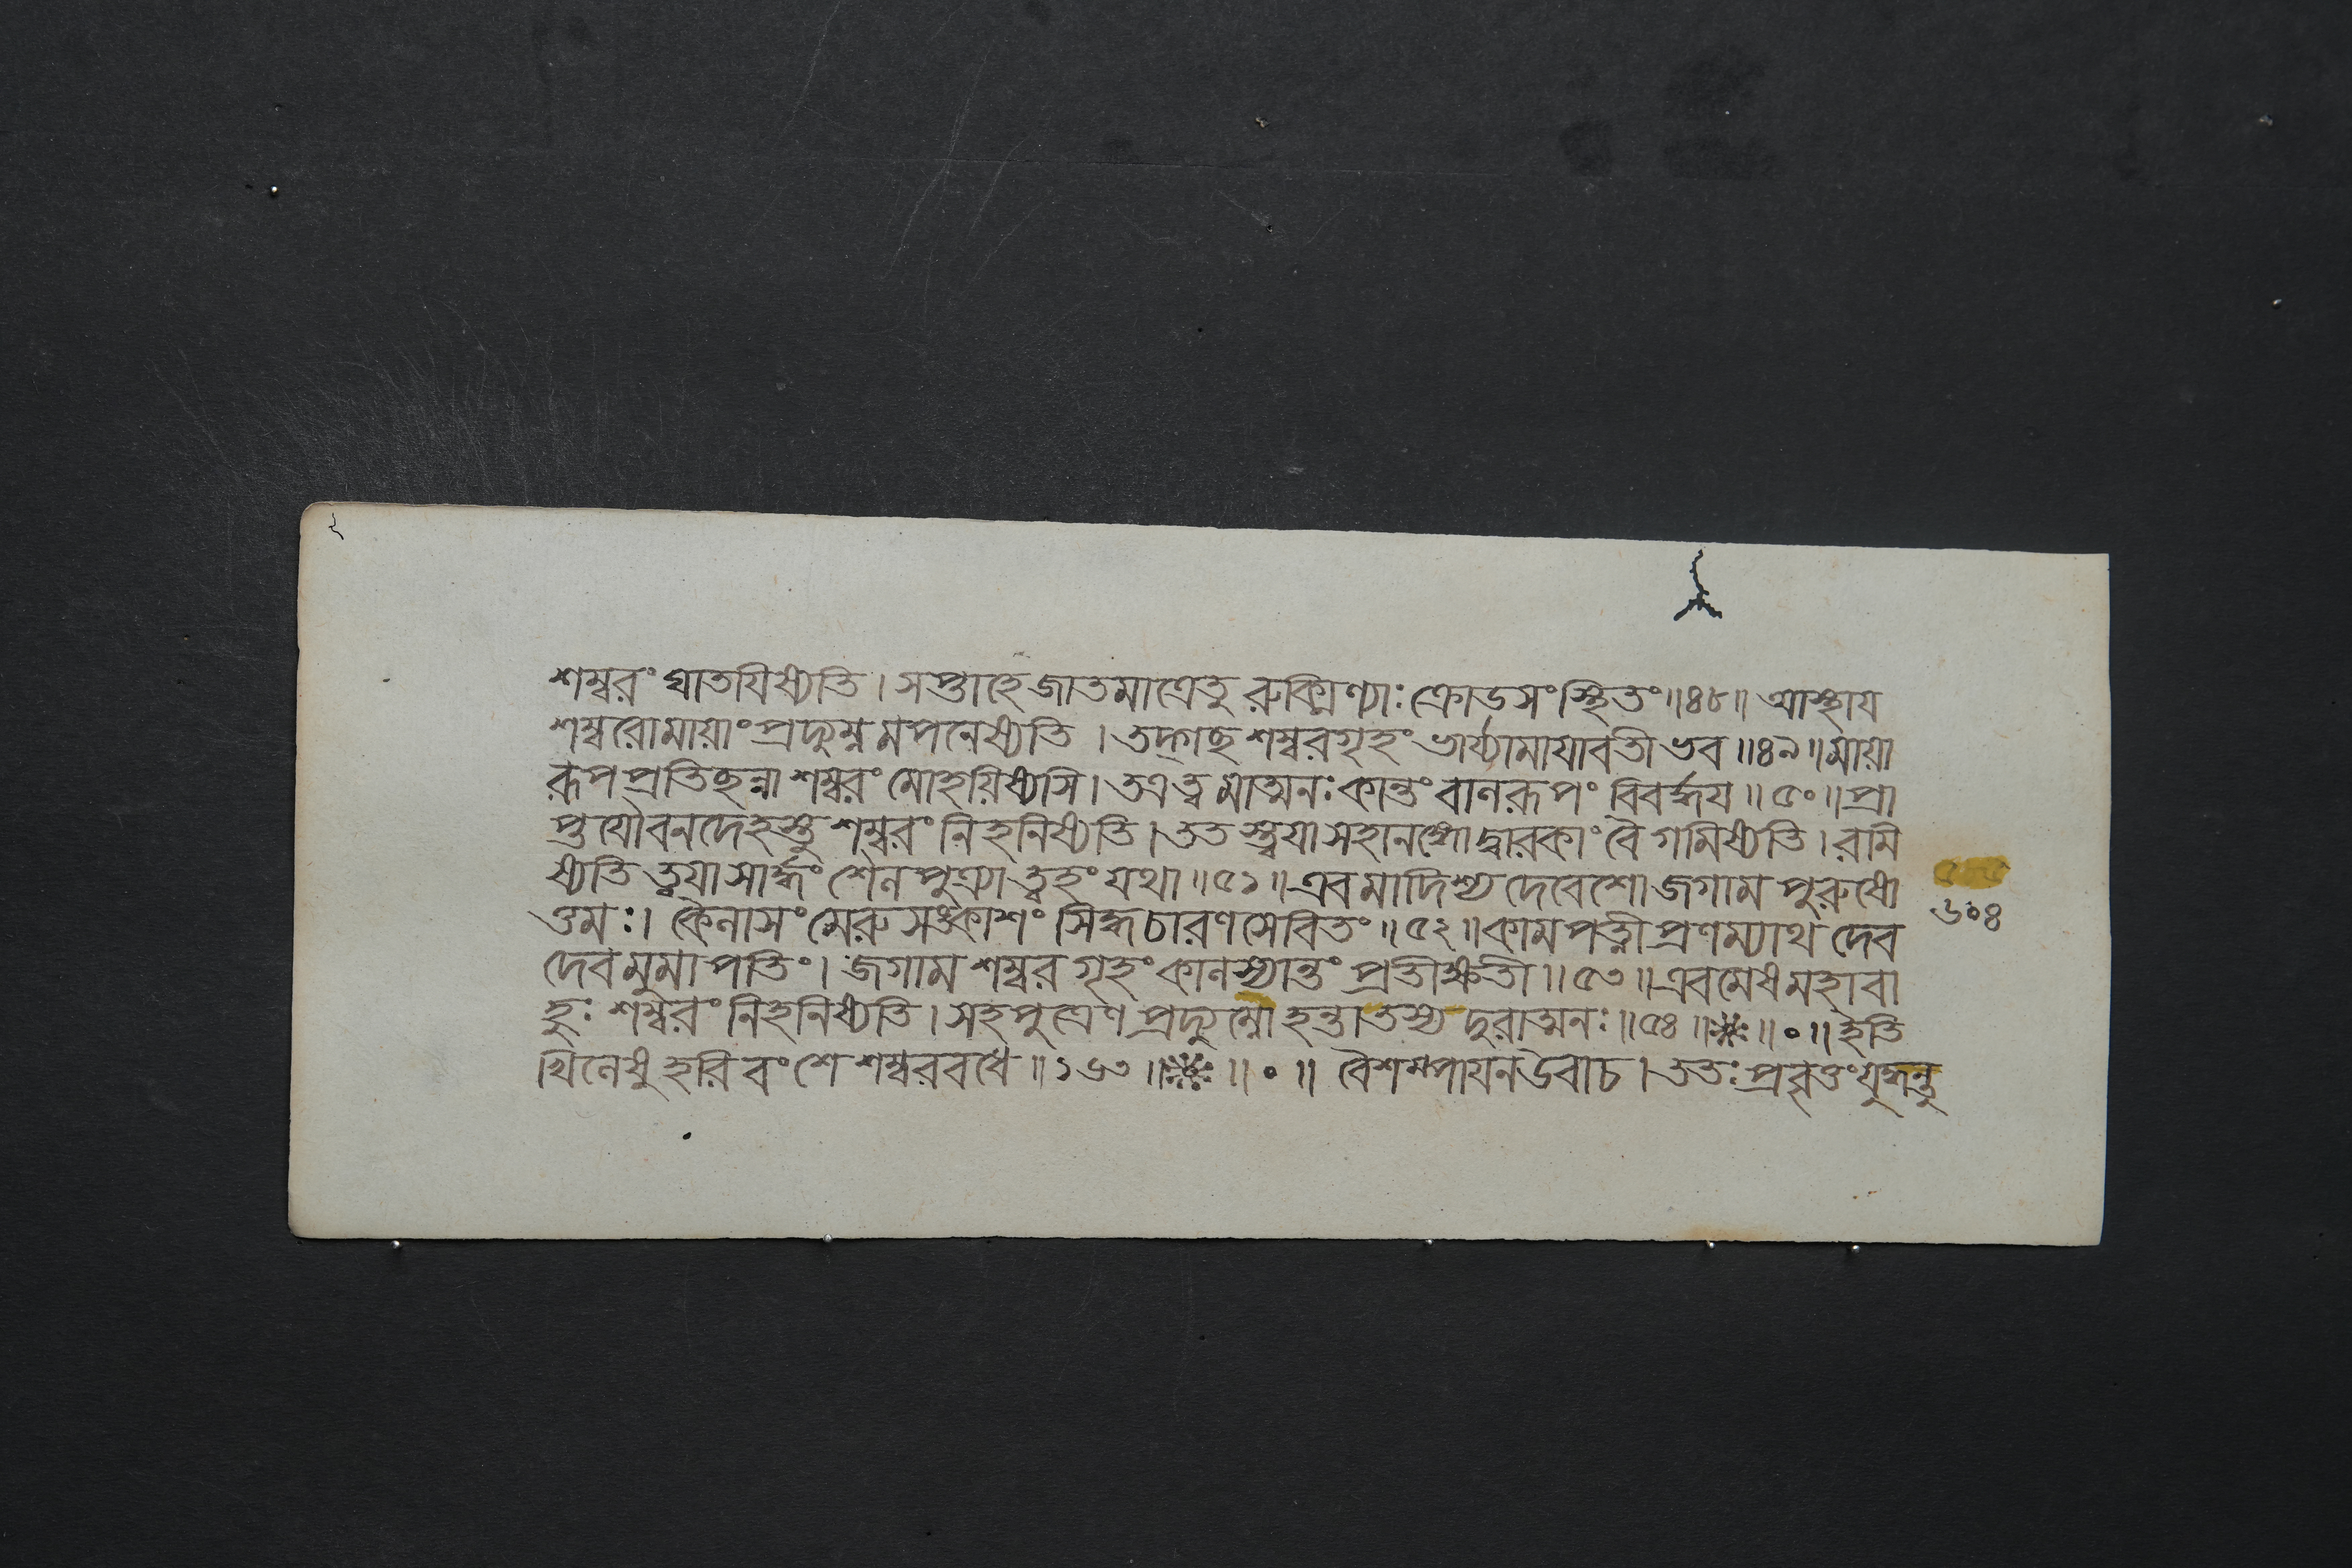 শম্বরং ঘাতযিষ্যতি। সপ্তাহে জাতমাত্রেতু রুক্মিণ্যাঃ ক্রোডসংস্থিতং॥৪৮॥ আস্থায
শম্বরোমায়াং প্রদ্যুম্নমপনেষ্যতি । তদ্গচ্ছ শম্বরগৃহং ভার্য্যামাযাবতী ভব॥৪৯॥মায়া
রূপ প্রতিছন্না শম্বরং মোহয়িষ্যসি। তত্র ত্বমাত্মনঃ কান্তং বালরূপং বিবর্দ্ধয॥৫০॥প্রা
প্তযৌবনদেহস্তু শম্বরং নিহনিষ্যতি। তত স্ত্বযা সহানঙ্গো দ্বারকাং বৈ গমিষ্যতি। রমি
ষ্যতি ত্বযা সার্দ্ধং শৈলপুত্র্যা ত্বহং যথা॥৫১॥এবমাদিশ্য দেবেশো জগাম পুরুষো
ত্তমঃ। কৈলাসং মেরুসঙ্কাশং সিদ্ধচারণসেবিতং॥৫২॥কামপত্নী প্রণম্যাথ দেব
দেবমুমাপতিং। জগাম শম্বর গৃহং কালস্যান্তং প্রতীক্ষতী॥৫৩॥এবমেষ মহাবা
হুঃ শম্বরং নিহনিষ্যতি। সহপুত্রেণ প্রদ্যুম্নো হন্তা তস্য দুরাত্মনঃ॥৫৪॥※॥০॥ইতি
খিলেষু হরিবংশে শম্বরবধে॥১৬৩॥※॥০॥ বৈশম্পাযনউবাচ। ততঃ প্রবৃত্তং যুদ্ধন্তু
৬০৪